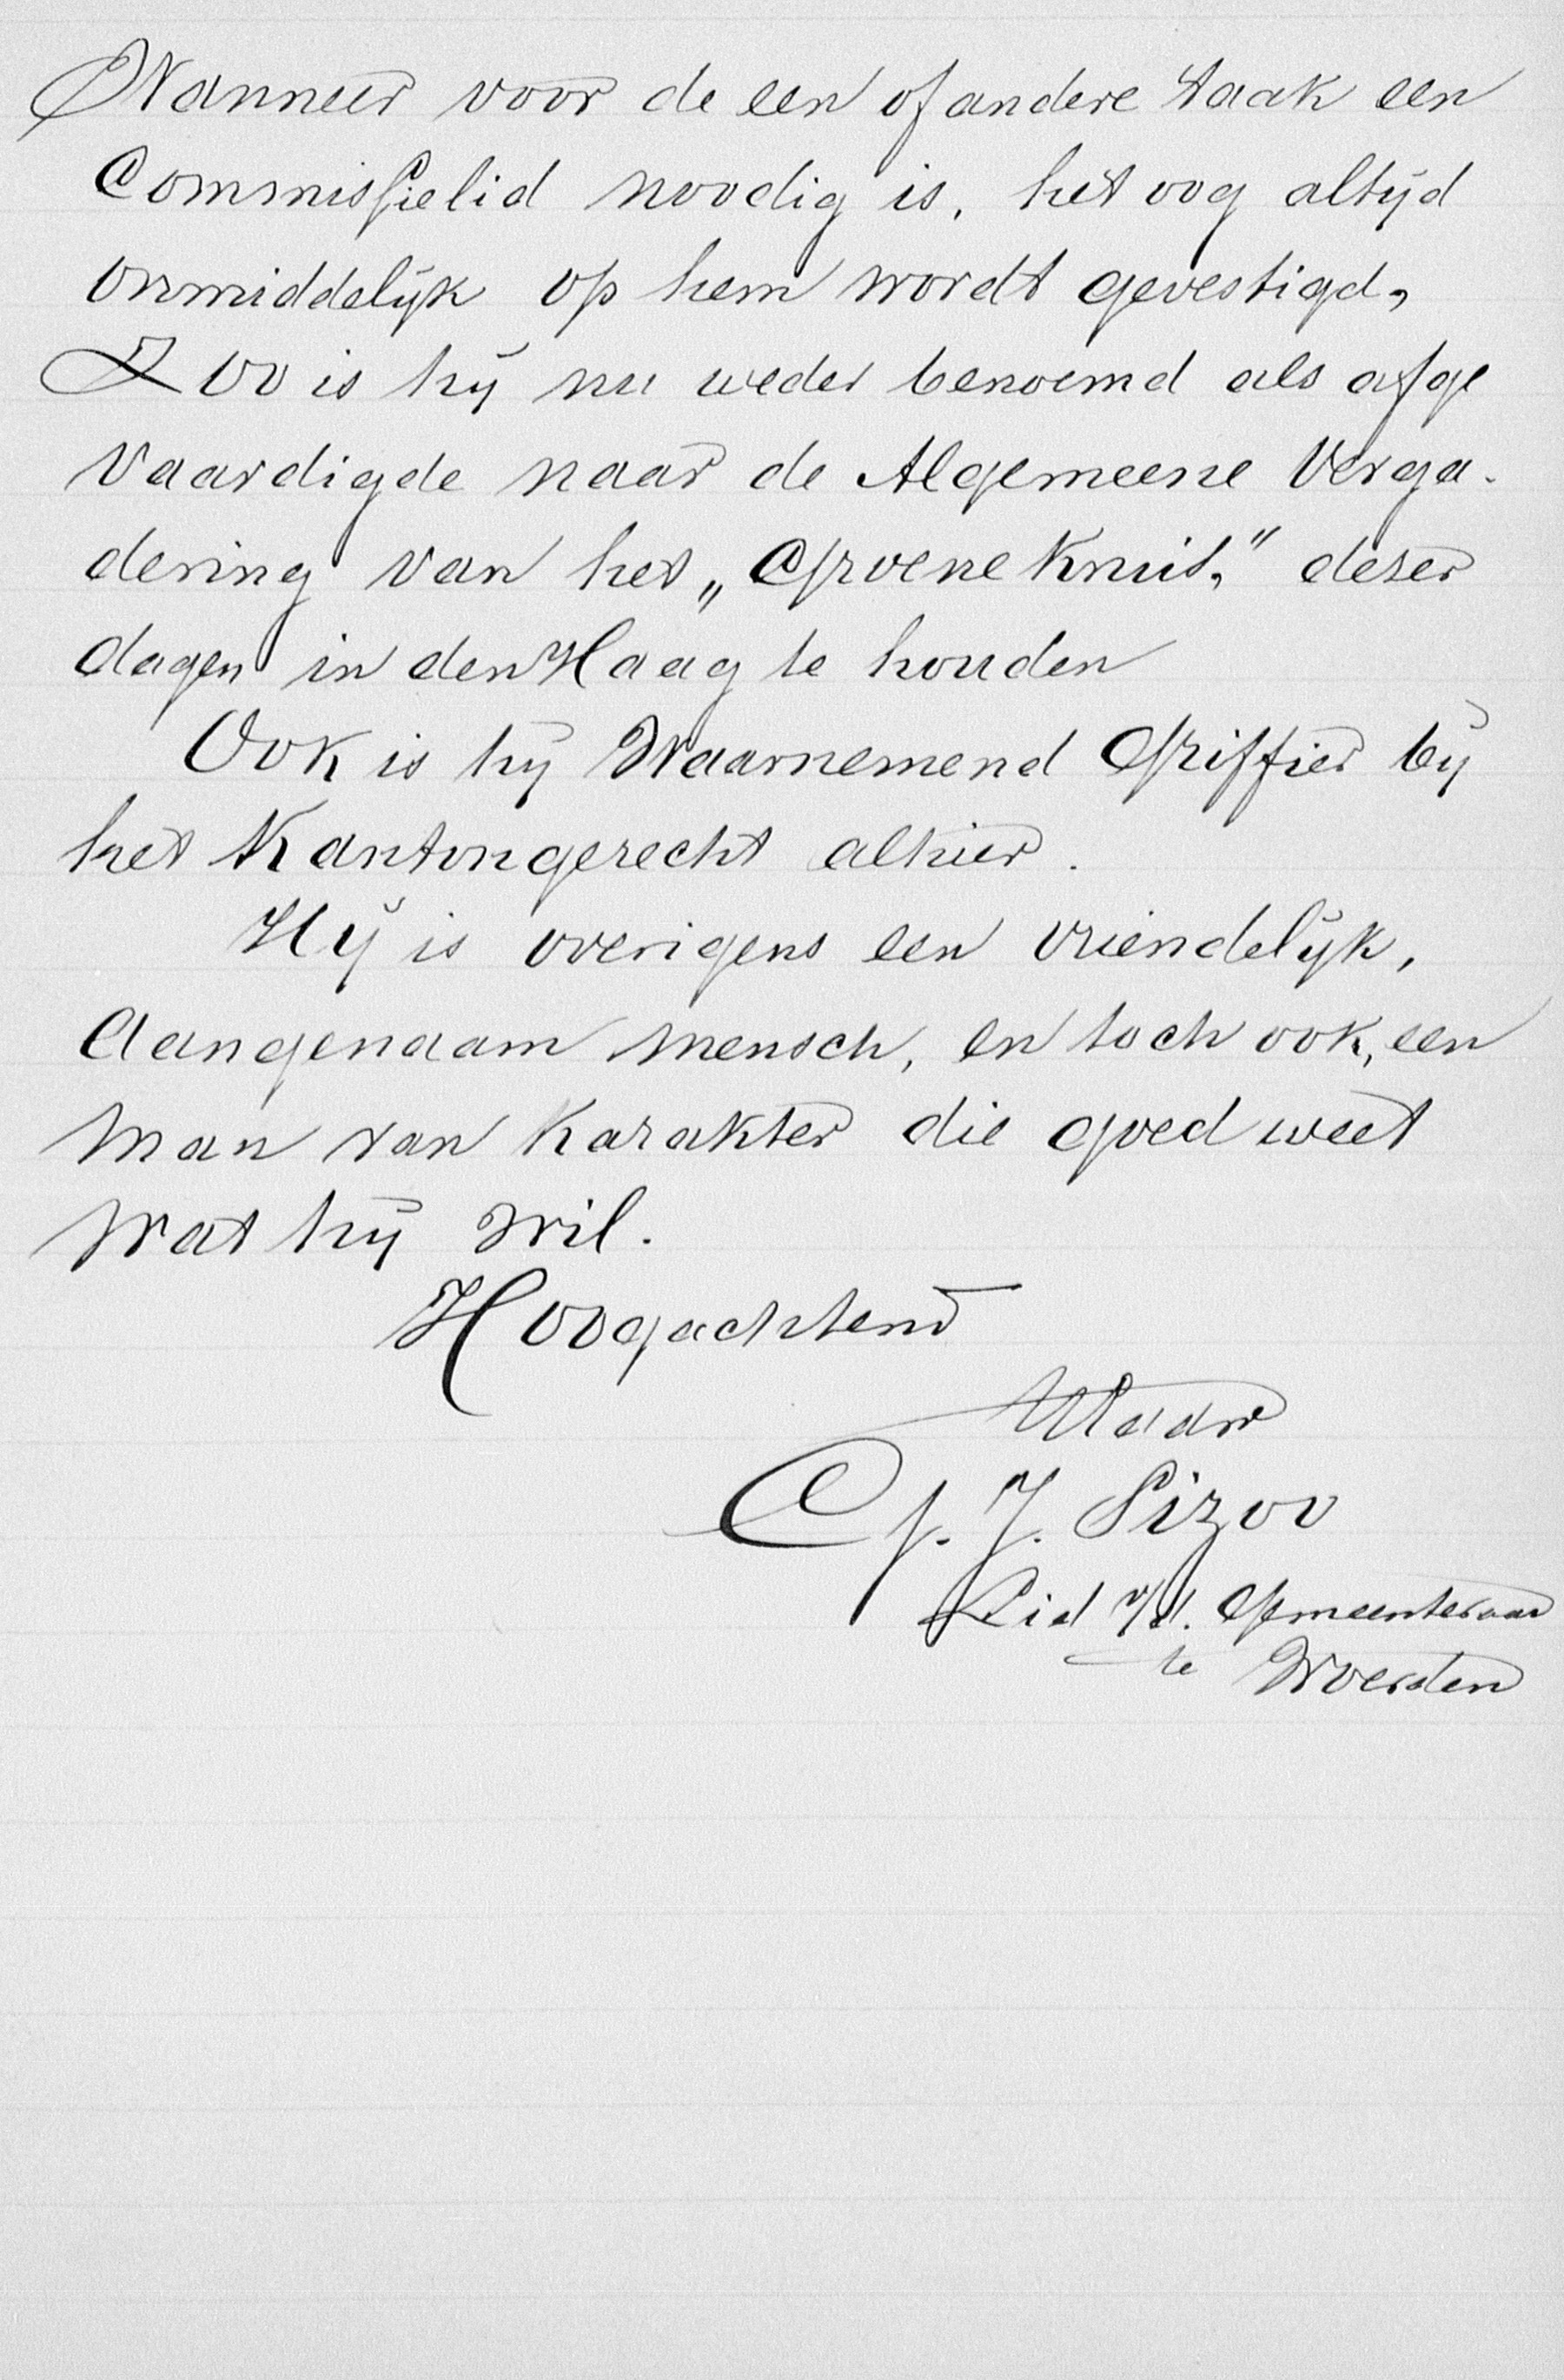 Wanneer voor de een of andere taak een
Commissielid noodig is, het oog altijd
onmiddelijk op hem wordt gevestigd,
Zoo is hij nu weder benoemd als afge
vaardigde naar de Algemeene Verga-
dering van het „Groene Kruis," dezer
dagen in den Haag te houden
Ook is hij Waarnemend Griffier bij
het Kantongerecht alhier.
Hij is overigens een vriendelijk,
Aangenaam mensch, en toch ook, een
man van karakter die goed weet
wat hij wil.
Hoogachtend
G. J. Sizoo
Lid v/d. Gemeenteraad
te Woerden